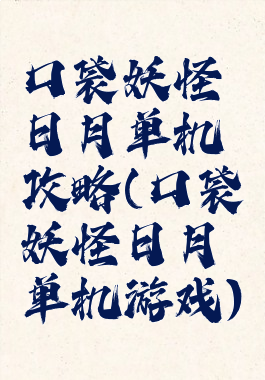 口袋妖怪
日月单机
攻略(口袋
妖怪日月
单机游戏)